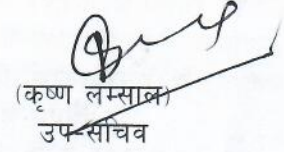 (कृष्ण लम्साल)
उप-सचिव